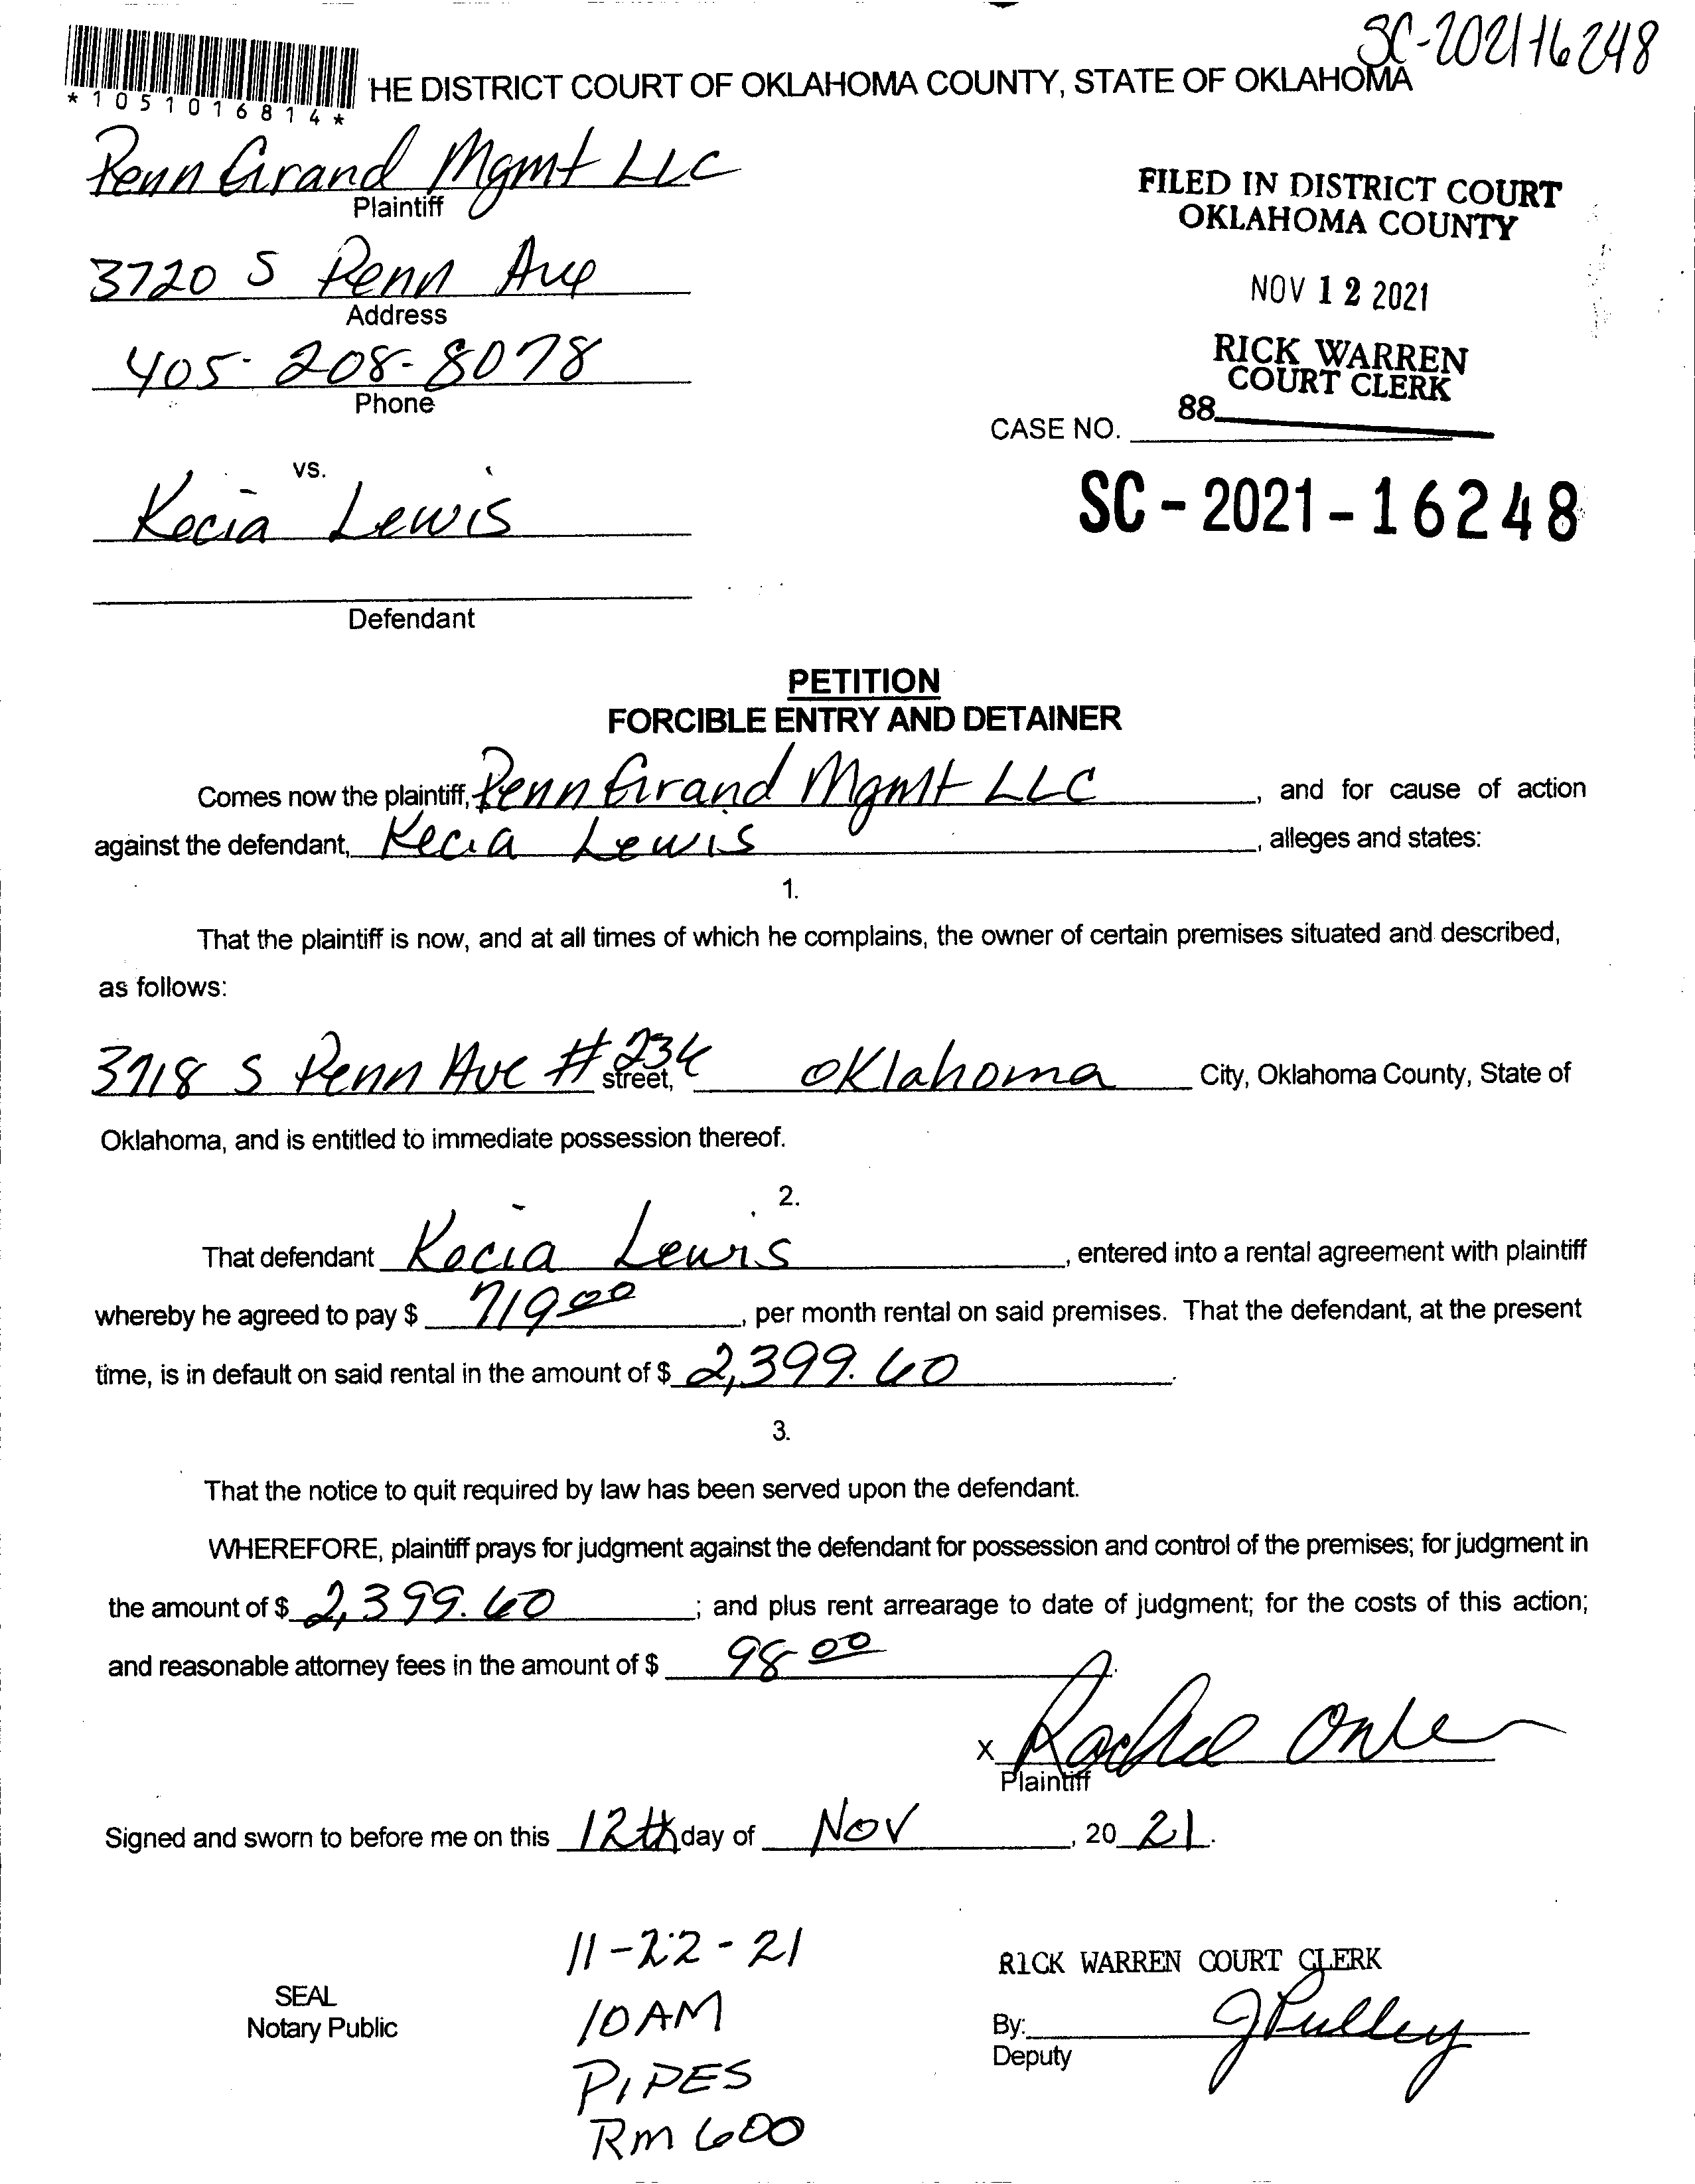 SC-2021-16248
*1051016814*
HE DISTRICT COURT OF OKLAHOMA COUNTY, STATE OF OKLAHOMA
Penn Grand Mgmt LLC
Plaintiff
FILED IN DISTRICT COURT
OKLAHOMA COUNTY
3720 S Penn Ave
Address
NOV 12 2021
405-208-8078
Phone
RICK WARREN
COURT CLERK
88
CASE NO.
vs.
Kecia Lewis
SC-2021-16248
Defendant
PETITION
FORCIBLE ENTRY AND DETAINER
Comes now the plaintiff, Penn Grand Mgmt LLC, and for cause of action
against the defendant, Kecia Lewis, alleges and states:
1.
That the plaintiff is now, and at all times of which he complains, the owner of certain premises situated and described,
as follows:
3718 S Penn Ave #236 street, Oklahoma City, Oklahoma County, State of
Oklahoma, and is entitled to immediate possession thereof.
2.
That defendant Kecia Lewis, entered into a rental agreement with plaintiff
whereby he agreed to pay $ 719.00, per month rental on said premises. That the defendant, at the present
time, is in default on said rental in the amount of $ 2,399.60.
3.
That the notice to quit required by law has been served upon the defendant.
WHEREFORE, plaintiff prays for judgment against the defendant for possession and control of the premises; for judgment in
the amount of $ 2,399.60; and plus rent arrearage to date of judgment; for the costs of this action;
and reasonable attorney fees in the amount of $ 98.00.
X
Plaintiff
Signed and sworn to before me on this 12th day of Nov, 20 21.
11-22-21
10 AM
PIPES
Rm 600
SEAL
Notary Public
RICK WARREN COURT CLERK
By: JPulley
Deputy